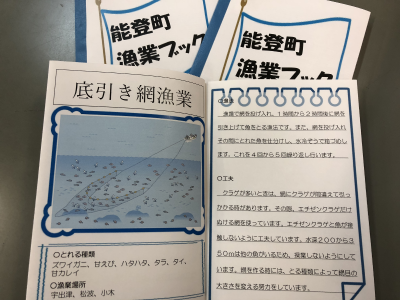 能登町
漁業ブック
能登町
漁業ブック
底引き網漁業
○とれる種類
ズワイガニ、甘えび、ハタハタ、タラ、タイ、
甘カレイ
○漁業場所
宇出津、松波、小木
○漁法
漁場で網を投げ入れ、1時間から2時間後に網を
引き上げて魚をとる漁法です。また、網を投げ入れ
その間にとれた魚を仕分けし、氷冷ぞうで箱づめし
ます。これを4回から5回繰り返し行います。
○工夫
クラゲが多いときは、網にクラゲが何百筆えて引っ
かかる時があります。その際、エチゼンクラゲだけ
ぬける網を使っています。エチゼンクラゲと魚が接
触しないように工夫しています。水深200から3
50mは他の魚がいるため、操業しないようにして
います。網を作る時には、とる種類によって網目の
大きさを変える努力をしています。